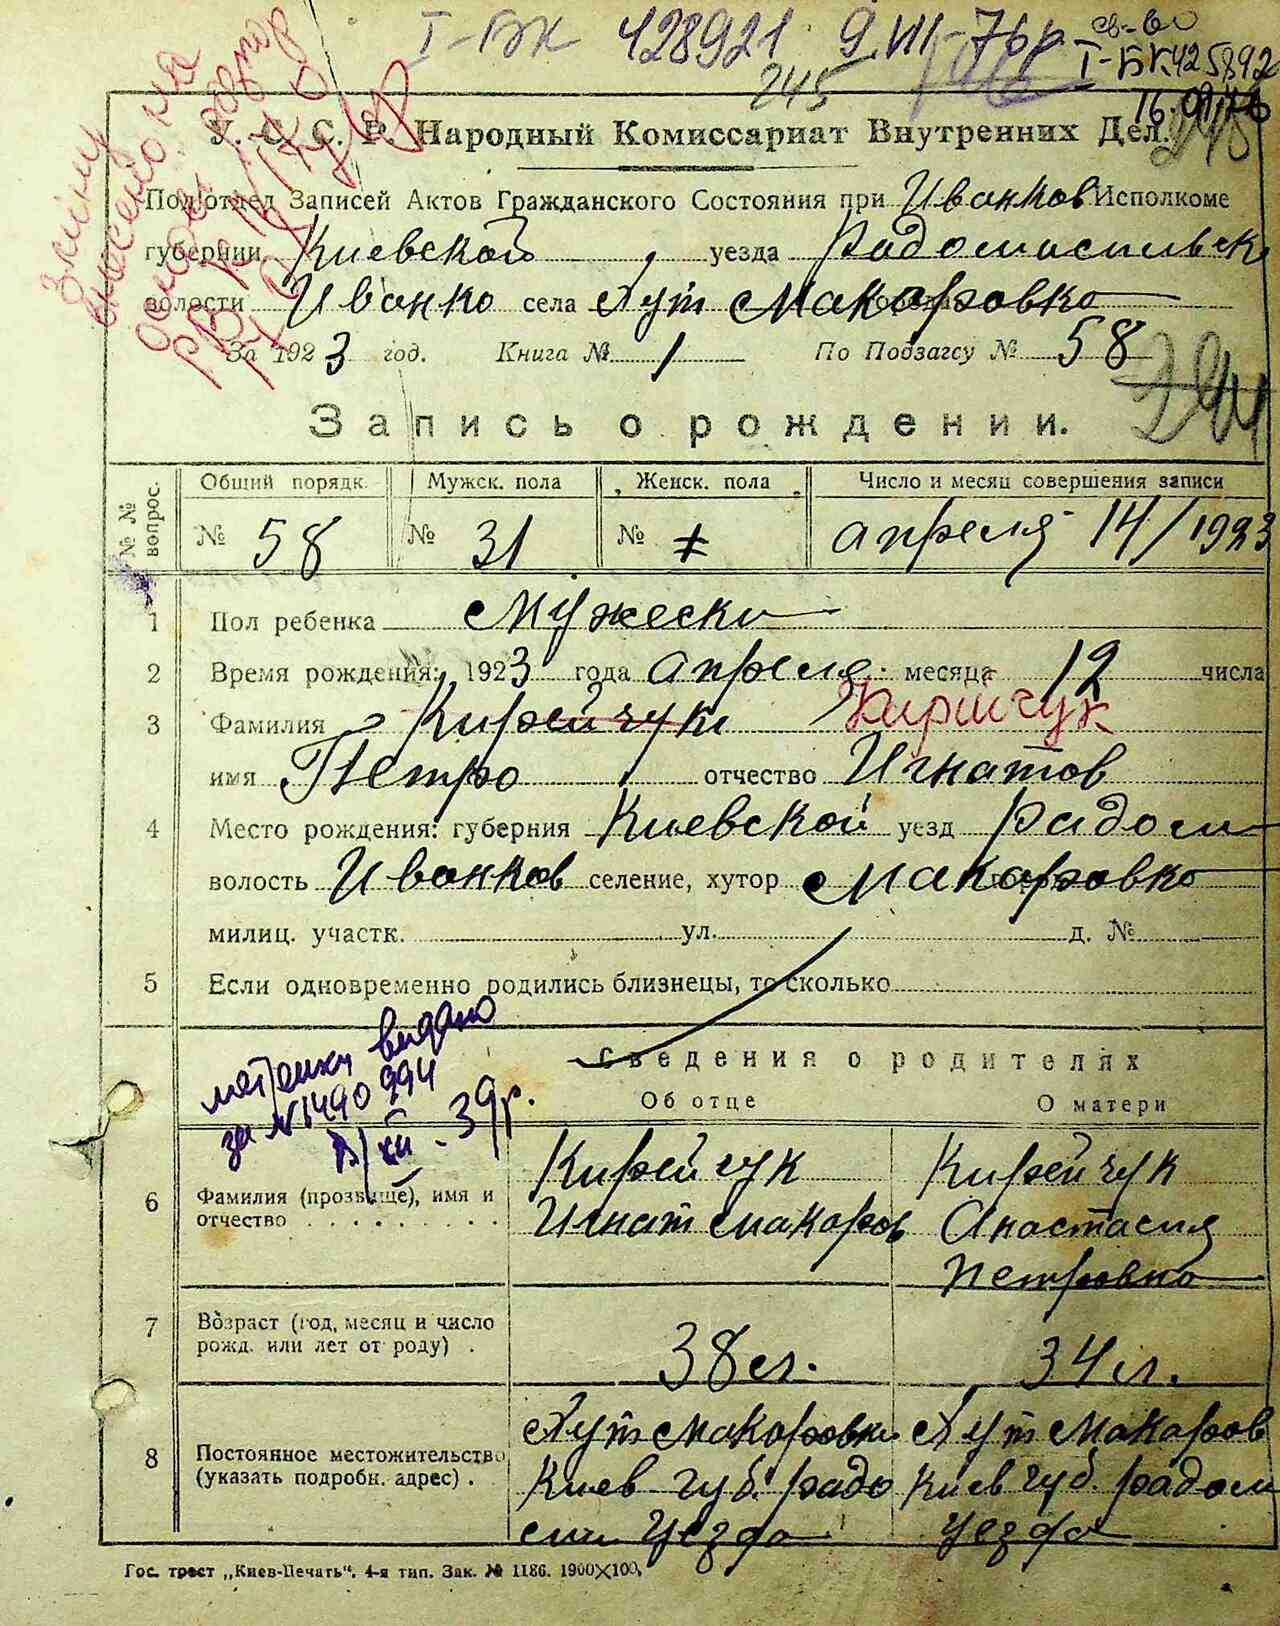 І-БК 428921 9.VIII-76р.
св-во
І-БК 425892
245
16.09.76
У. С. С. Р. Народный Комиссариат Внутренних Дел.
Зміну внесено на
Под'отдел Записей Актов Гражданского Состояния при Иванков Исполкоме
губернии Киевской уезда Радомисльск
волости Иванко села Хут Макаровко
За 1923 год. Книга № 1 По Подзагсу № 58
244
Запись о рождении.
№ № вопрос. Общий порядк. Мужск. пола Женск. пола Число и месяц совершения записи
№ 58 № 31 № апреля 14/1923
1 Пол ребенка Мужески
2 Время рождения: 1923 года апреля месяца 12 числа
3 Фамилия Кирейчук Кирійчук
имя Петро отчество Игнатов
4 Место рождения: губерния Киевской уезд Радом
волость Иванков селение, хутор Макаровко
милиц. участк. ул. д. №
5 Если одновременно родились близнецы, то сколько
метрику видано
за № 1490994
/XII - 39р.
Сведения о родителях
Об отце О матери
6 Фамилия (прозвище), имя и отчество
Кирейчук Кирейчук
Игнат Макаров Анастасия
Петровна
7 Возраст (год, месяц и число рожд. или лет от роду)
38 л. 34 л.
8 Постоянное местожительство (указать подробн. адрес)
Хут Макаровка Хут Макаров
Киев губ. радо Киев губ. радом
уезда уезда
Гос. трест „Киев-Печать“. 4-я тип. Зак. № 1186. 1900×100.